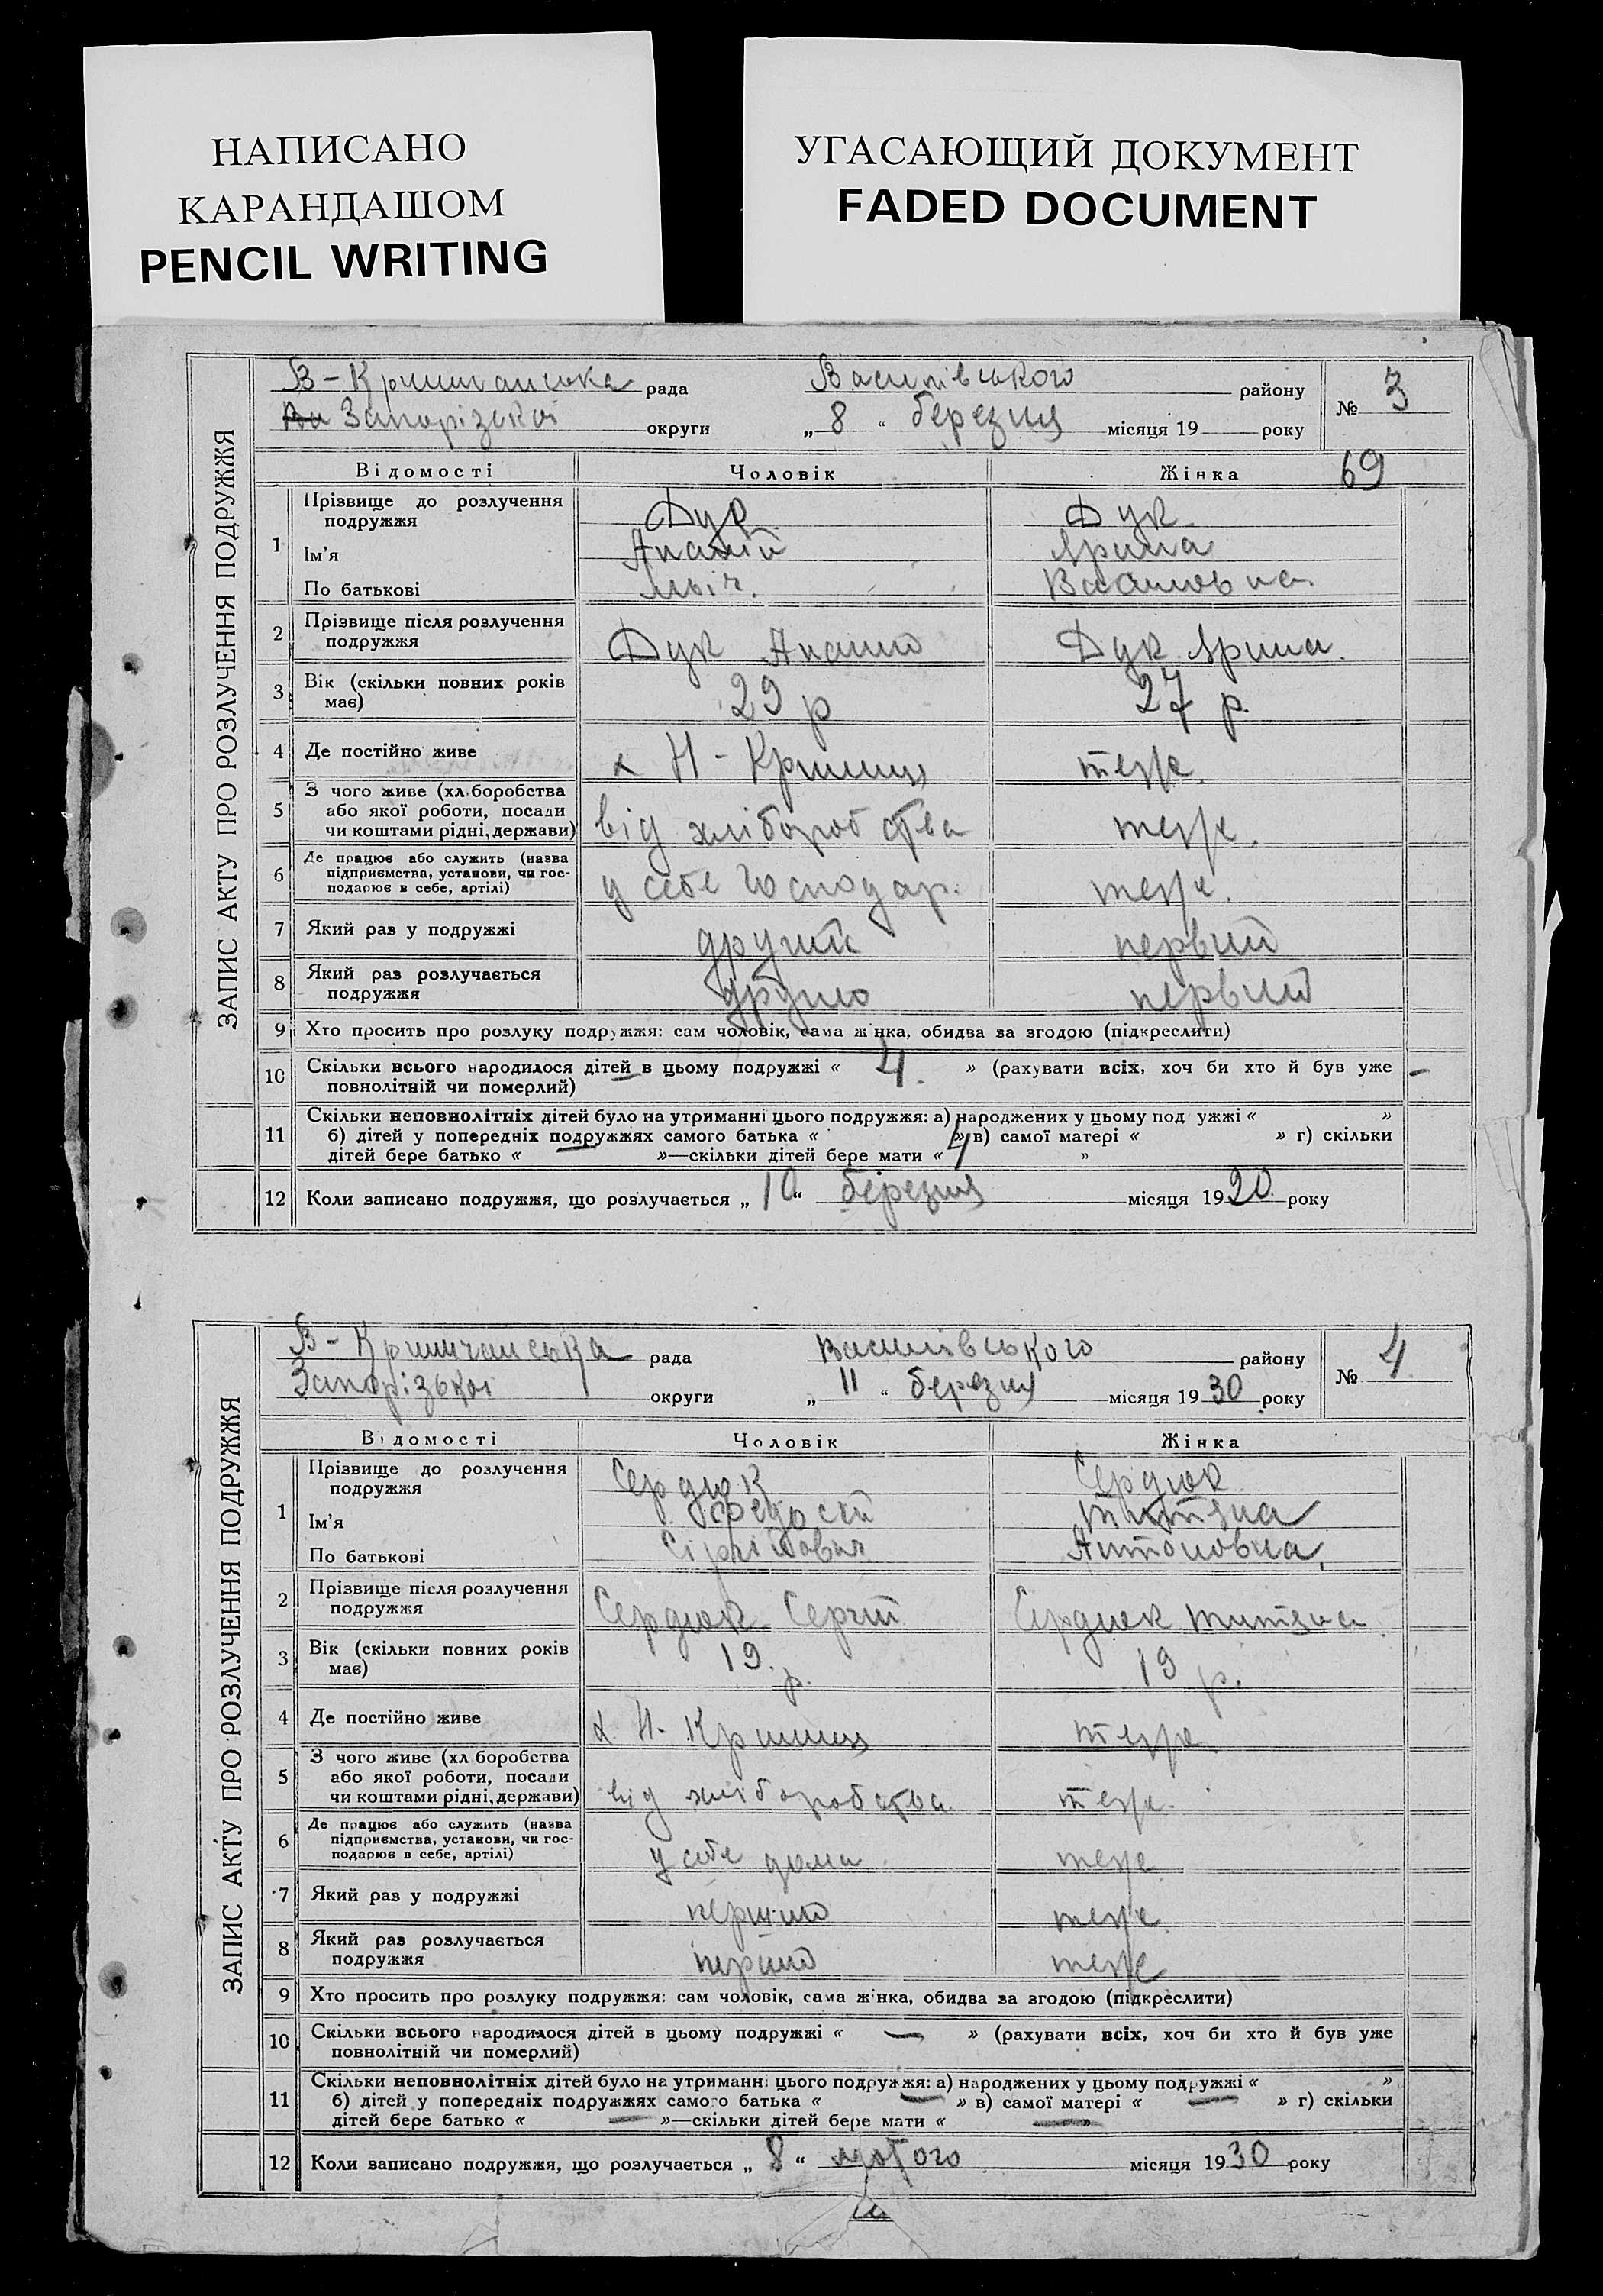 НАПИСАНО
КАРАНДАШОМ
PENCIL WRITING
УГАСАЮЩИЙ ДОКУМЕНТ
FADED DOCUMENT
ЗАПИС АКТУ ПРО РОЗЛУЧЕННЯ ПОДРУЖЖЯ
рада Василівського району № 3
Запорізької округи „ 8 “ березня місяця 19 року
69
Відомості Чоловік Жінка
1 Прізвище до розлучення Дук Дук
подружжя
Ім’я Ананій Ярина
По батькові
2 Прізвище після розлучення
подружжя Дук Дук Ярина.
3 Вік (скільки повних років
має) 29 р 27 р.
4 Де постійно живе х Н-Криниця теже.
5 З чого живе (хліборобства
або якої роботи, посади
чи коштами рідні, держави) від хліборобства теже.
6 Де працює або служить (назва
підприємства, установи, чи гос-
подарює в себе, артілі) у себе господар. теже.
7 Який раз у подружжі другий первий
8 Який раз розлучається
подружжя первий
9 Хто просить про розлуку подружжя: сам чоловік, сама жінка, обидва за згодою (підкреслити)
10 Скільки всього народилося дітей в цьому подружжі « 4. » (рахувати всіх, хоч би хто й був уже —
повнолітній чи померлий)
11 Скільки неповнолітніх дітей було на утриманні цього подружжя: а) народжених у цьому подружжі « »
б) дітей у попередніх подружжях самого батька « » в) самої матері « » г) скільки
дітей бере батько « »—скільки дітей бере мати « 4 »
12 Коли записано подружжя, що розлучається „ 10 “ березня місяця 1920 року
ЗАПИС АКТУ ПРО РОЗЛУЧЕННЯ ПОДРУЖЖЯ
В-Криничанська рада Василівського району № 4
Запорізької округи „ 11 “ березня місяця 1930 року
Відомості Чоловік Жінка
1 Прізвище до розлучення Сердюк Сердюк
подружжя
Ім’я Федосій
По батькові Антоновна.
2 Прізвище після розлучення
подружжя Сердюк Сергій Сердюк
3 Вік (скільки повних років
має) 19. р. 19 р.
4 Де постійно живе х Н-Криниця теже.
5 З чого живе (хліборобства
або якої роботи, посади
чи коштами рідні, держави) від хліборобства. теже.
6 Де працює або служить (назва
підприємства, установи, чи гос-
подарює в себе, артілі) у себе дома теже
7 Який раз у подружжі теже.
8 Який раз розлучається
подружжя теже
9 Хто просить про розлуку подружжя: сам чоловік, сама жінка, обидва за згодою (підкреслити)
10 Скільки всього народилося дітей в цьому подружжі « — » (рахувати всіх, хоч би хто й був уже
повнолітній чи померлий)
11 Скільки неповнолітніх дітей було на утриманні цього подружжя: а) народжених у цьому подружжі « »
б) дітей у попередніх подружжях самого батька « — » в) самої матері « — » г) скільки
дітей бере батько « — »—скільки дітей бере мати « — »
12 Коли записано подружжя, що розлучається „ 8 “ лютого місяця 1930 року